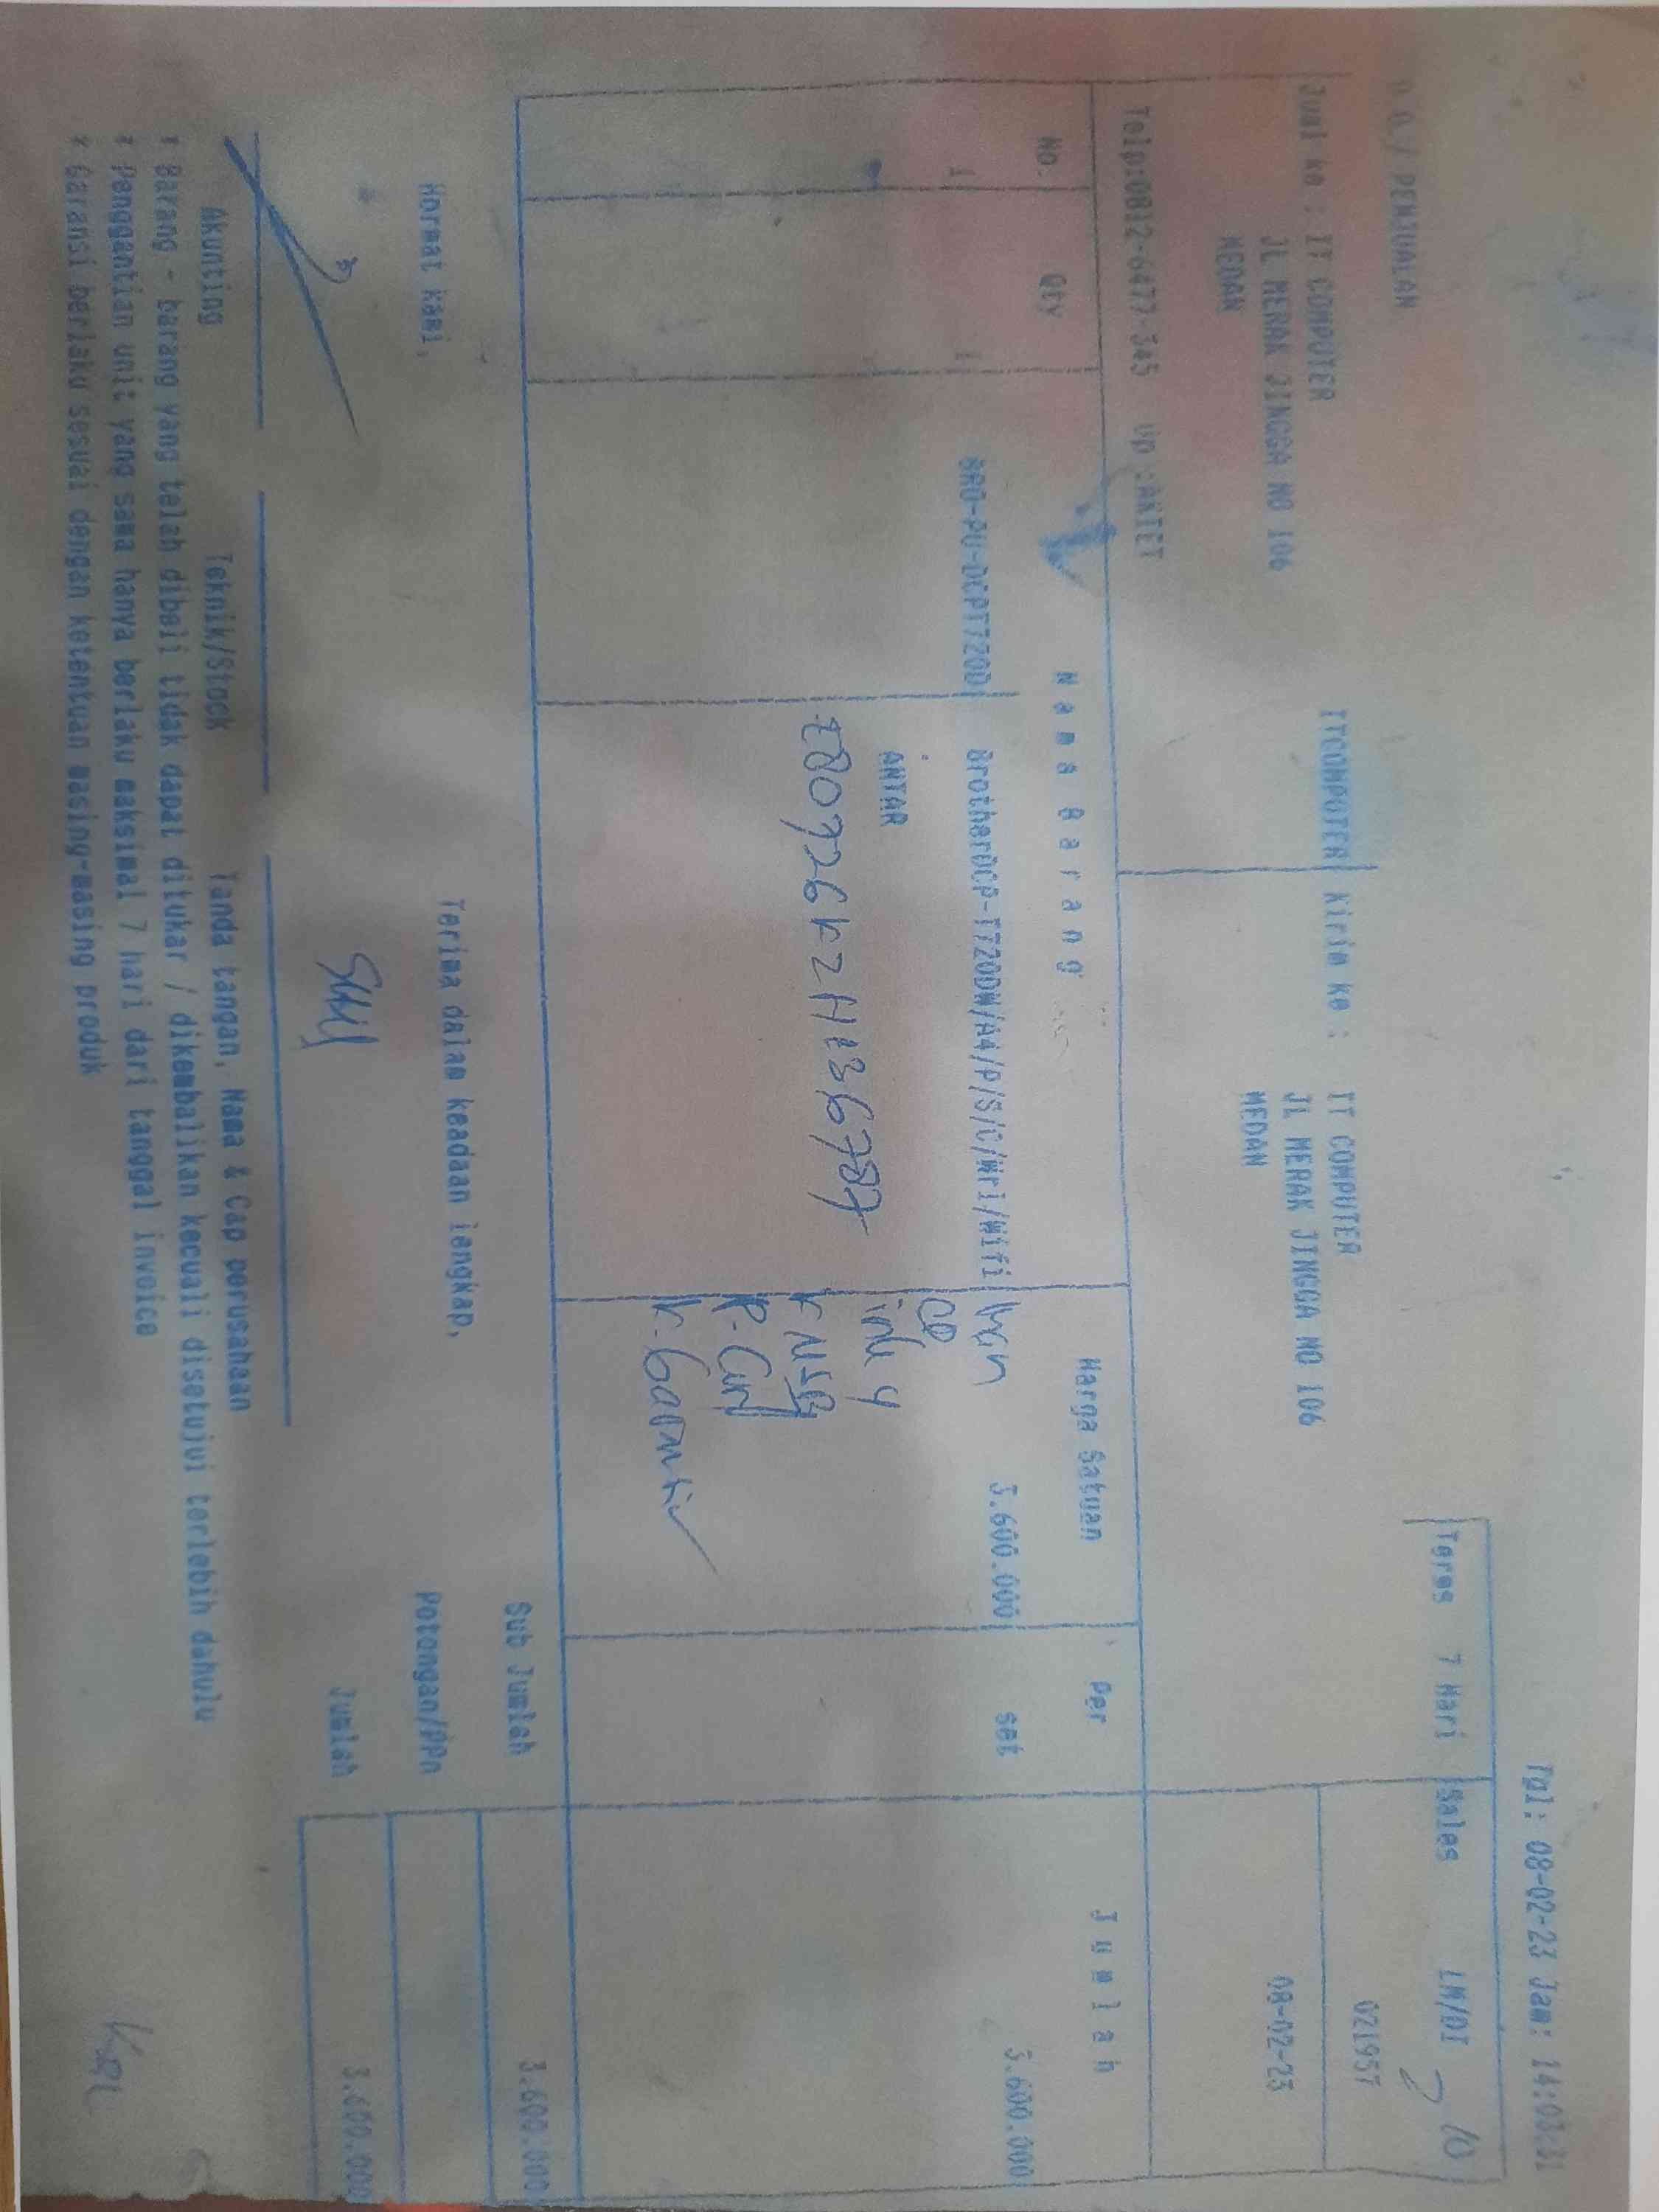 Tgl: 08-02-23 Jam: 14:03:31
/ PENJUALAN
Terms 7 Hari Sales LM/DI
10
Jual ke : IT COMPUTER
JL MERAK JINGGA NO 106
MEDAN
ITCOMPUTER
Kirim ke : IT COMPUTER
JL MERAK JINGGA NO 106
MEDAN
021957
08-02-23
Telp:0812-6477-345 Up :ANTET
No. Qty Nama Barang Harga Satuan Per Jumlah
1 1 BRO-PU-DCPT720D BrotherDCP-T720DW/A4/P/S/C/Wrl/Wifi 3.600.000 set 3.600.000
ANTAR
E80726K2H136787
CD
ink 4
Hormat kami,
Terima dalam keadaan lengkap,
Sub Jumlah 3.600.000
Potongan/PPn
Jumlah 3.600.000
Akunting Teknik/Stock Tanda tangan, Nama & Cap perusahaan
* Barang - barang yang telah dibeli tidak dapat ditukar / dikembalikan kecuali disetujui terlebih dahulu
* Penggantian unit yang sama hanya berlaku maksimal 7 hari dari tanggal invoice
* Garansi berlaku sesuai dengan ketentuan masing-masing produk